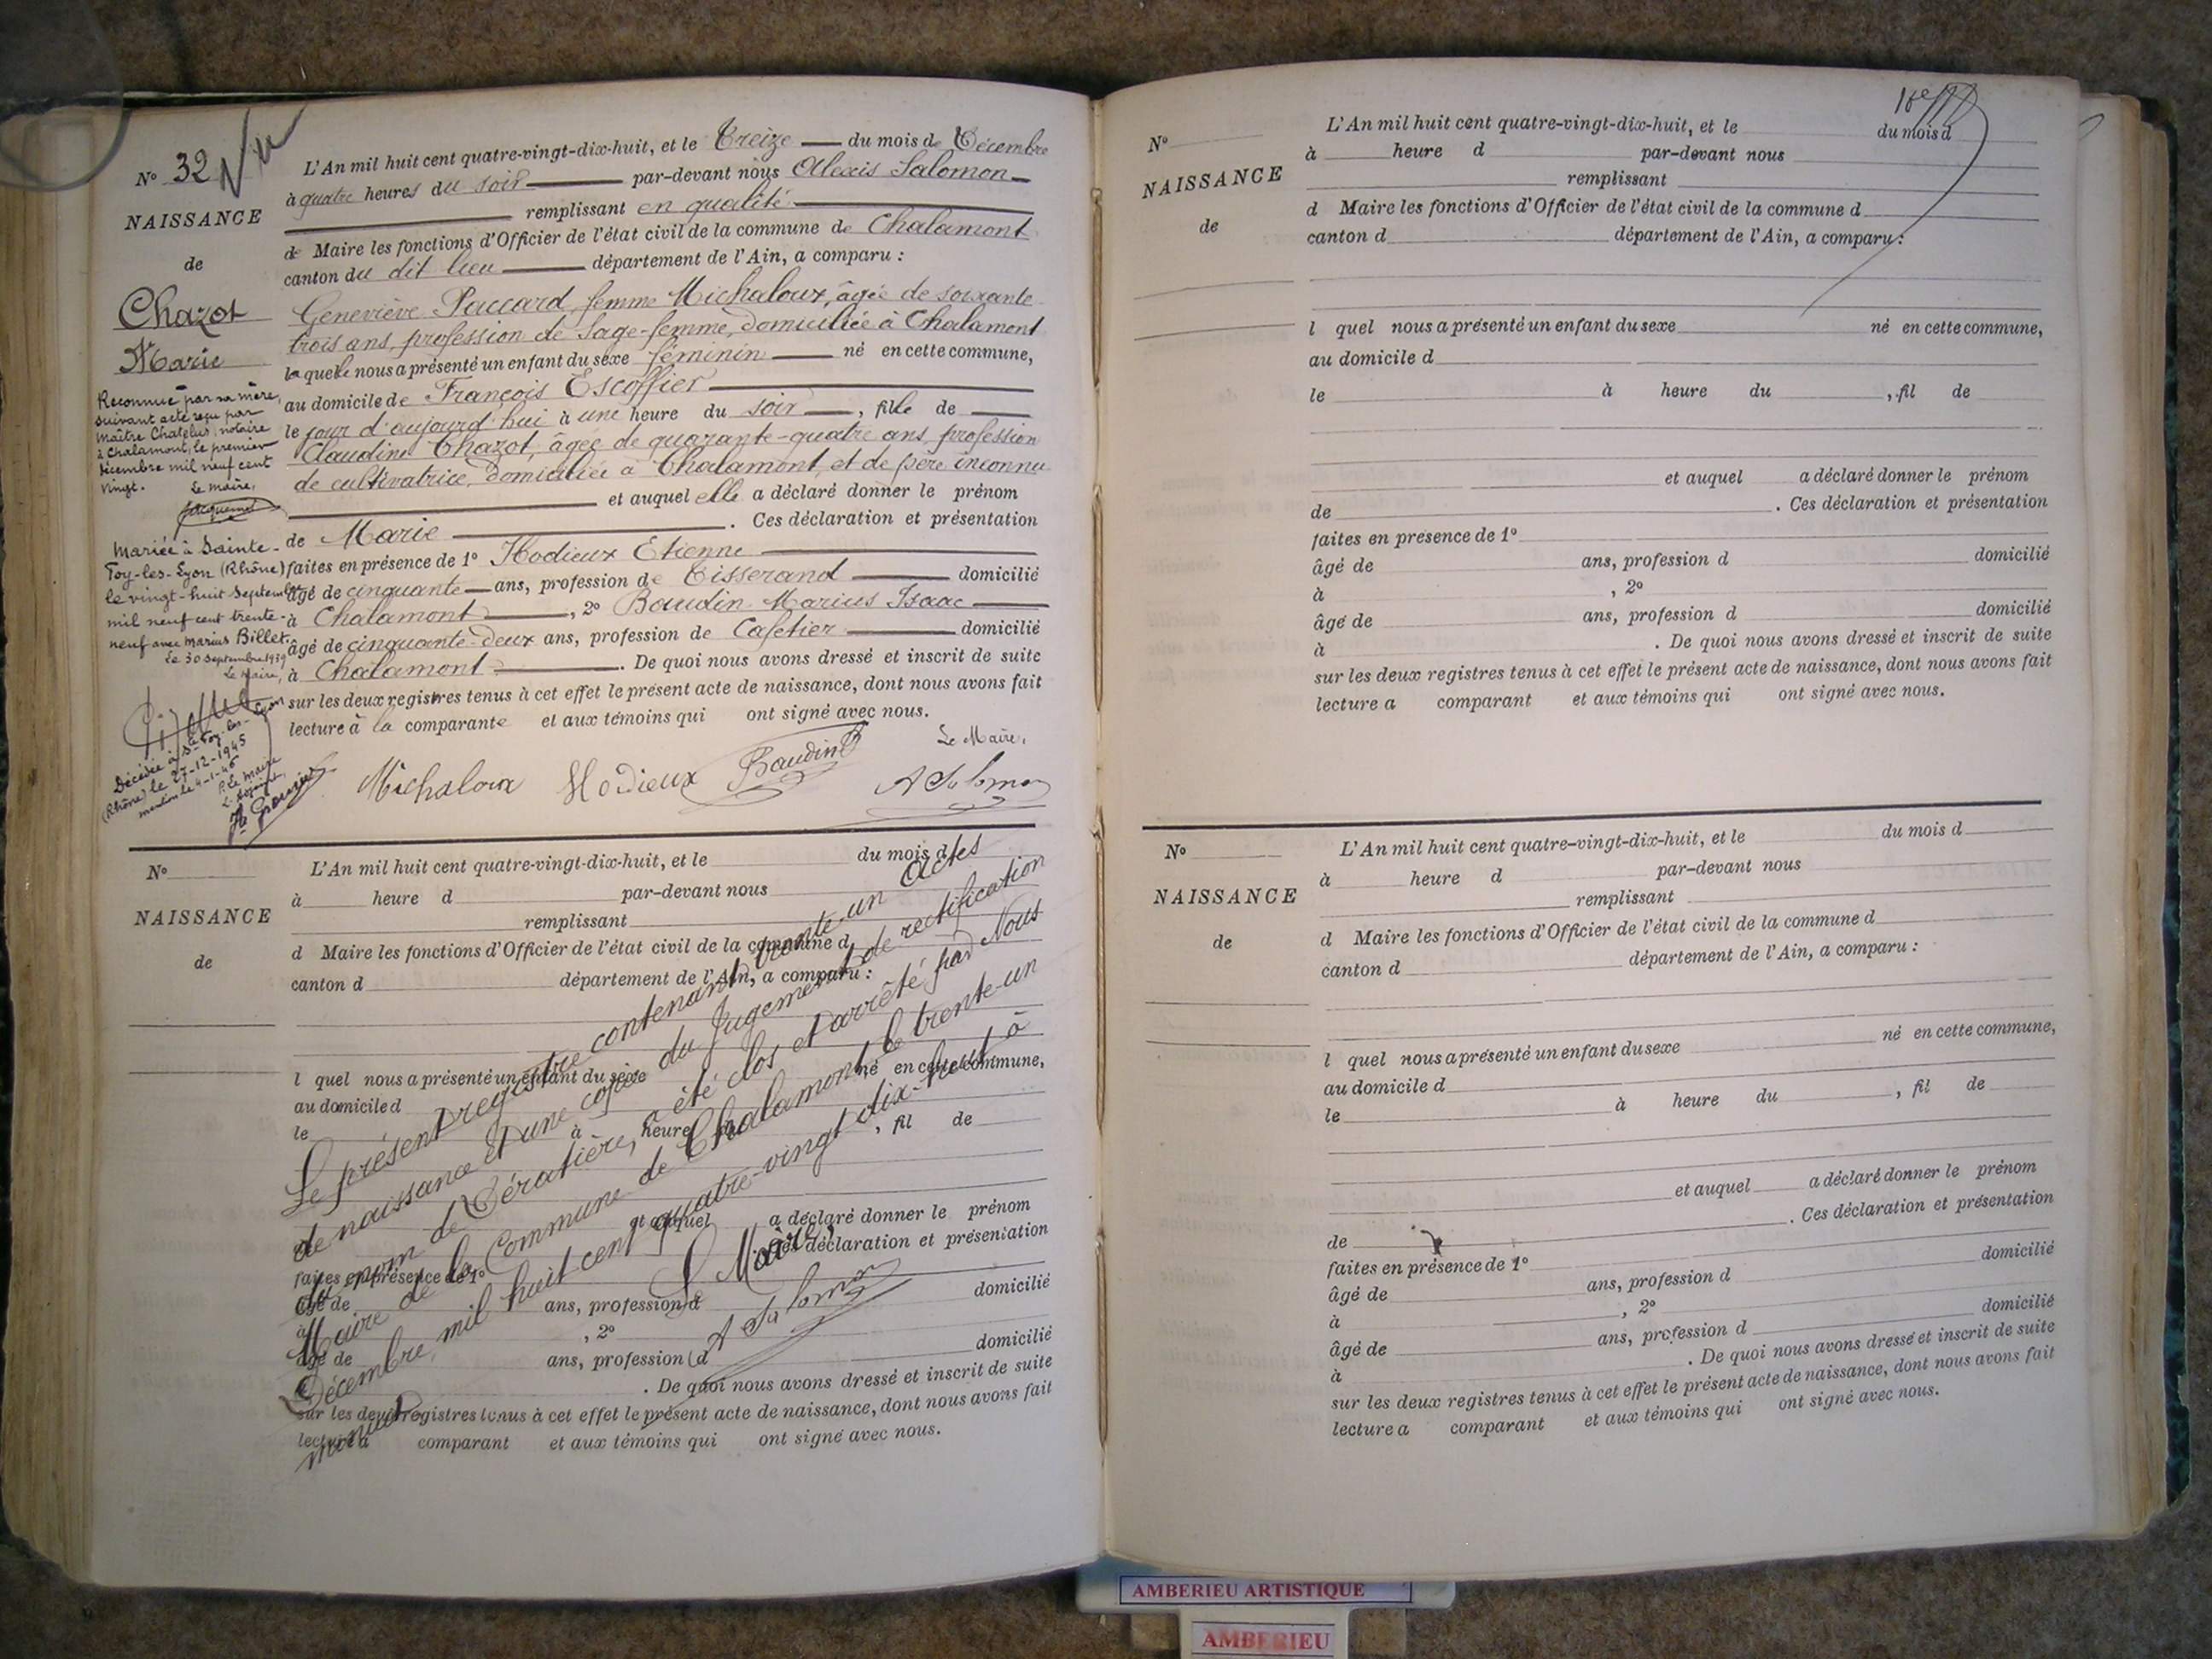 N° 32 Vu
NAISSANCE
de
Chazot
Marie
L'An mil huit cent quatre-vingt-dix-huit, et le Treize du mois de Décembre
à quatre heures du soir par-devant nous Alexis Salomon
remplissant en qualité
de Maire les fonctions d'Officier de l'état civil de la commune de Chalamont
canton du dit lieu département de l'Ain, a comparu :
Geneviève Paccard, femme Michaloux, âgée de soixante
trois ans, profession de Sage-femme, domiciliée à Chalamont
laquelle nous a présenté un enfant du sexe féminin né en cette commune,
au domicile de François Escoffier
le jour d'aujourd'hui à une heure du soir, fille de
Claudine Chazot, âgée de quarante-quatre ans, profession
de cultivatrice, domiciliée à Chalamont, et de père inconnu
et auquel elle a déclaré donner le prénom
de Marie . Ces déclaration et présentation
faites en présence de 1° Hodieux Etienne
âgé de cinquante ans, profession de Tisserand domicilié
à Chalamont , 2° Baudin Marius Isaac
âgé de cinquante-deux ans, profession de Cafetier domicilié
à Chalamont . De quoi nous avons dressé et inscrit de suite
sur les deux registres tenus à cet effet le présent acte de naissance, dont nous avons fait
lecture à la comparante et aux témoins qui ont signé avec nous.
Le Maire,
Michaloux Hodieux Baudin A Salomon
Reconnue par sa mère,
suivant acte reçu par
Maître Chatelus, notaire
à Chalamont, le premier
décembre mil neuf cent
vingt. Le Maire,
Mariée à Sainte-
Foy-les-Lyon (Rhône)
le vingt-huit Septembre
mil neuf cent trente-
neuf avec Marius Billet.
Le 30 Septembre 1939
Le Maire,
Décédée à Ste Foy-les-Lyon
(Rhône) le 27-12-1945
mention le 4-1-46
P. Le Maire
L'Adjoint,
N°
NAISSANCE
de
L'An mil huit cent quatre-vingt-dix-huit, et le du mois d
à heure d par-devant nous
remplissant
d Maire les fonctions d'Officier de l'état civil de la commune d
canton d département de l'Ain, a comparu :
l quel nous a présenté un enfant du sexe né en cette commune,
au domicile d
le à heure du , fil de
et auquel a déclaré donner le prénom
Ces déclaration et présentation
faites en présence de 1°
âgé de ans, profession d domicilié
à , 2°
âgé de ans, profession d domicilié
à . De quoi nous avons dressé et inscrit de suite
sur les deux registres tenus à cet effet le présent acte de naissance, dont nous avons fait
lecture a comparant et aux témoins qui ont signé avec nous.
Le présent registre contenant trente-un actes
de naissance et une copie du Jugement de rectification
du nom de Dératière, a été clos et arrêté par Nous
Maire de la Commune de Chalamont le trente-un
Décembre, mil huit cent quatre-vingt dix-huit à
minuit
Le Maire,
A Salomon
N°
NAISSANCE
de
L'An mil huit cent quatre-vingt-dix-huit, et le du mois d
à heure d par-devant nous
remplissant
d Maire les fonctions d'Officier de l'état civil de la commune d
canton d département de l'Ain, a comparu :
l quel nous a présenté un enfant du sexe né en cette commune,
au domicile d
le à heure du , fil de
et auquel a déclaré donner le prénom
de . Ces déclaration et présentation
faites en présence de 1°
âgé de ans, profession d domicilié
à , 2°
âgé de ans, profession d domicilié
à . De quoi nous avons dressé et inscrit de suite
sur les deux registres tenus à cet effet le présent acte de naissance, dont nous avons fait
lecture a comparant et aux témoins qui ont signé avec nous.
N°
NAISSANCE
de
L'An mil huit cent quatre-vingt-dix-huit, et le du mois d
à heure d par-devant nous
remplissant
d Maire les fonctions d'Officier de l'état civil de la commune d
canton d département de l'Ain, a comparu :
l quel nous a présenté un enfant du sexe né en cette commune,
au domicile d
le à heure du , fil de
et auquel a déclaré donner le prénom
de . Ces déclaration et présentation
faites en présence de 1°
âgé de ans, profession d domicilié
à , 2°
âgé de ans, profession d domicilié
à . De quoi nous avons dressé et inscrit de suite
sur les deux registres tenus à cet effet le présent acte de naissance, dont nous avons fait
lecture a comparant et aux témoins qui ont signé avec nous.
AMBERIEU ARTISTIQUE
AMBERIEU